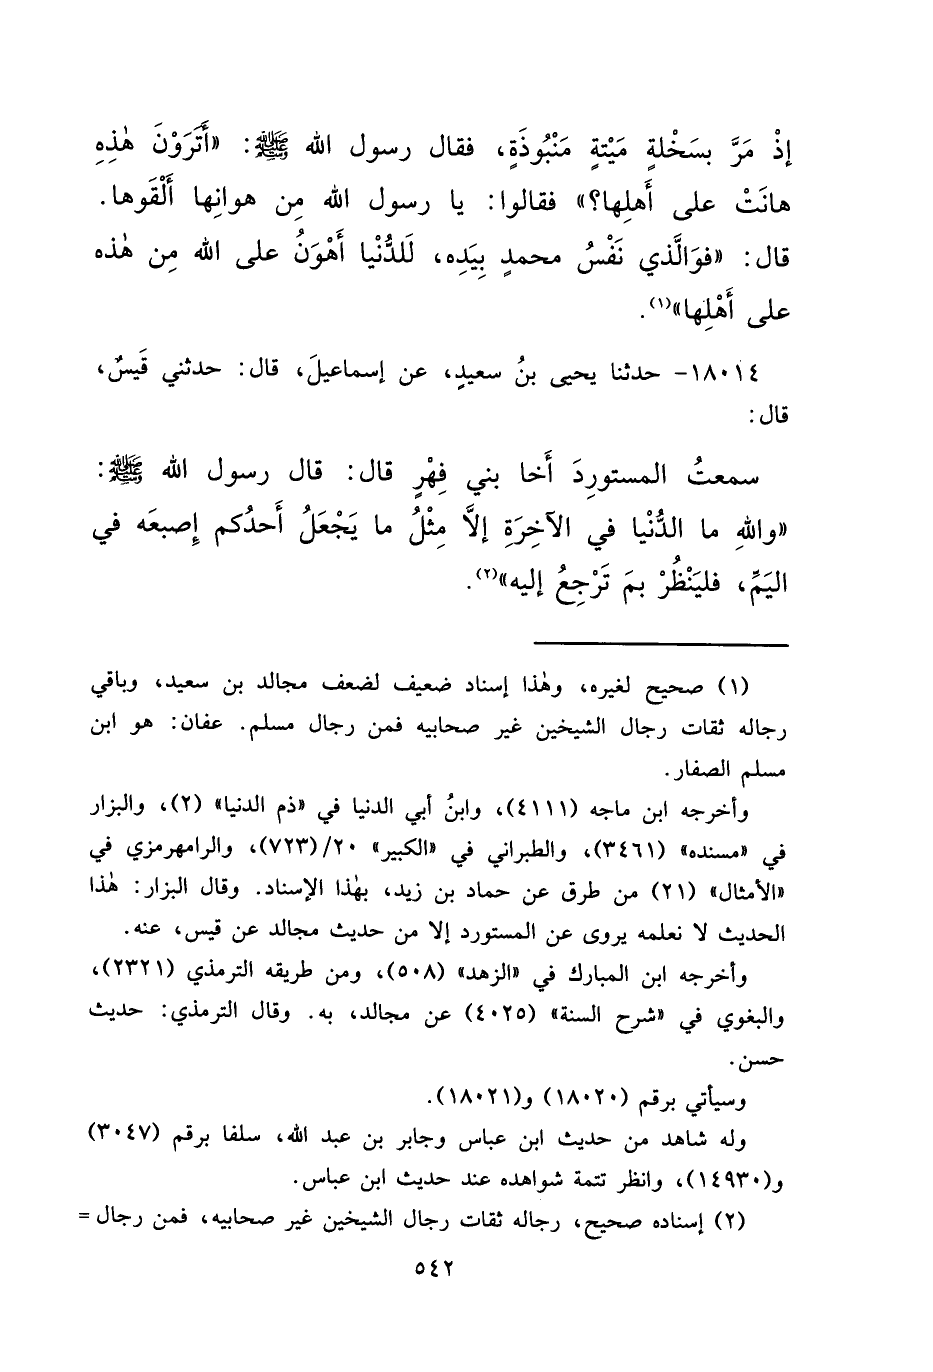 إذْ مَرَّ بسَخْلةٍ مَيْتةٍ مَنْبُوذَةٍ، فقال رسول الله ﷺ: «أَتَرَوْنَ هٰذِهِ
هانَتْ على أَهلِها؟» فقالوا: يا رسول الله مِن هوانِها أَلْقَوها.
قال: «فوَالَّذي نَفْسُ محمدٍ بِيَدِه، لَلدُّنْيا أَهْوَنُ على الله مِن هٰذه
على أَهْلِها»(١).
١٨٠١٤- حدثنا يحيى بنُ سعيدٍ، عن إسماعيلَ، قال: حدثني قَيسٌ،
قال:
سمعتُ المستورِدَ أَخا بني فِهْرٍ قال: قال رسول الله ﷺ:
«واللهِ ما الدُّنْيا في الآخِرَةِ إلاَّ مِثْلُ ما يَجْعَلُ أَحدُكم إِصبعَه في
اليَمِّ، فليَنْظُرْ بمَ تَرْجِعُ إليه»(٢).
(١) صحيح لغيره، وهٰذا إسناد ضعيف لضعف مجالد بن سعيد، وباقي
رجاله ثقات رجال الشيخين غير صحابيه فمن رجال مسلم. عفان: هو ابن
مسلم الصفار.
وأخرجه ابن ماجه (٤١١١)، وابنُ أبي الدنيا في «ذم الدنيا» (٢)، والبزار
في «مسنده» (٣٤٦١)، والطبراني في «الكبير» ٢٠/(٧٢٣)، والرامهرمزي في
«الأمثال» (٢١) من طرق عن حماد بن زيد، بهٰذا الإسناد. وقال البزار: هٰذا
الحديث لا نعلمه يروى عن المستورد إلا من حديث مجالد عن قيس، عنه.
وأخرجه ابن المبارك في «الزهد» (٥٠٨)، ومن طريقه الترمذي (٢٣٢١)،
والبغوي في «شرح السنة» (٤٠٢٥) عن مجالد، به. وقال الترمذي: حديث
حسن.
وسيأتي برقم (١٨٠٢٠) و(١٨٠٢١).
وله شاهد من حديث ابن عباس وجابر بن عبد الله، سلفا برقم (٣٠٤٧)
و(١٤٩٣٠)، وانظر تتمة شواهده عند حديث ابن عباس.
(٢) إسناده صحيح، رجاله ثقات رجال الشيخين غير صحابيه، فمن رجال =
٥٤٢